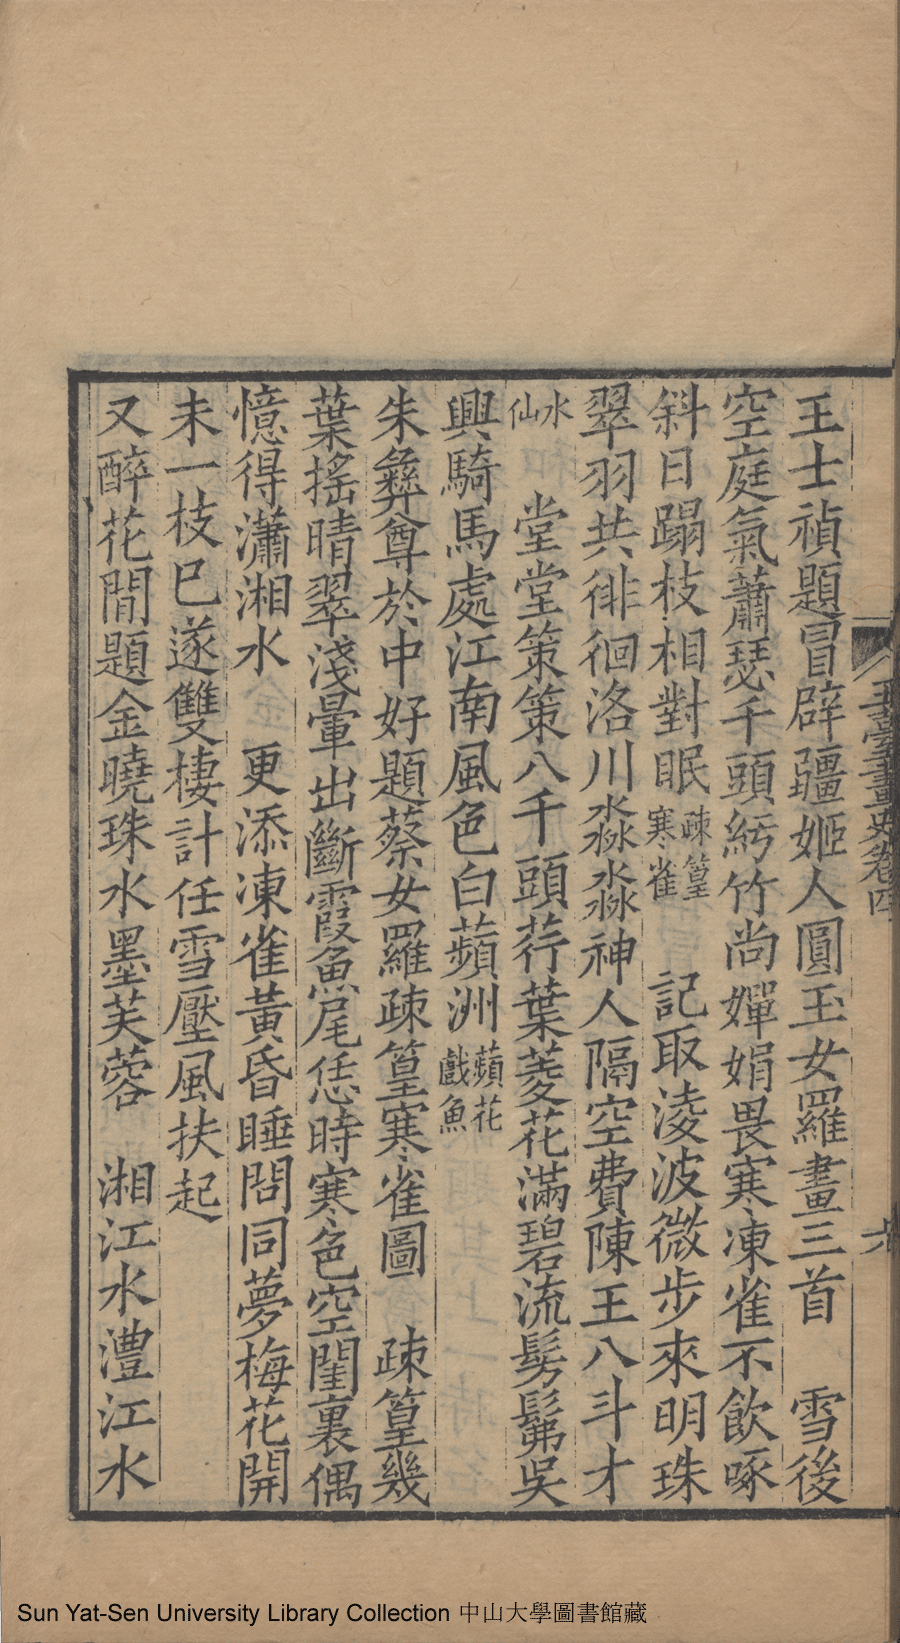 玉臺畫史卷四
六
王士禎題冒辟疆姬人圓玉女羅畫三首　雪後
空庭氣蕭瑟千頭紆竹尚嬋娟畏寒凍雀不飲啄
斜日蹋枝相對眠疎篁寒雀　記取淩波微步來明珠
翠羽共徘徊洛川淼淼神人隔空費陳王八斗才
水仙　堂堂策策八千頭荇葉菱花滿碧流髣髴吳
興騎馬處江南風色白蘋洲蘋花戲魚
朱彝尊於中好題蔡女羅疎篁寒雀圖　疎篁幾
葉搖晴翠淺暈出斷霞魚尾恁時寒色空閨裏偶
憶得瀟湘水　更添凍雀黃昏睡問同夢梅花開
未一枝已遂雙棲計任雪壓風扶起
又醉花間題金曉珠水墨芙蓉　湘江水澧江水
Sun Yat-Sen University Library Collection 中山大學圖書館藏